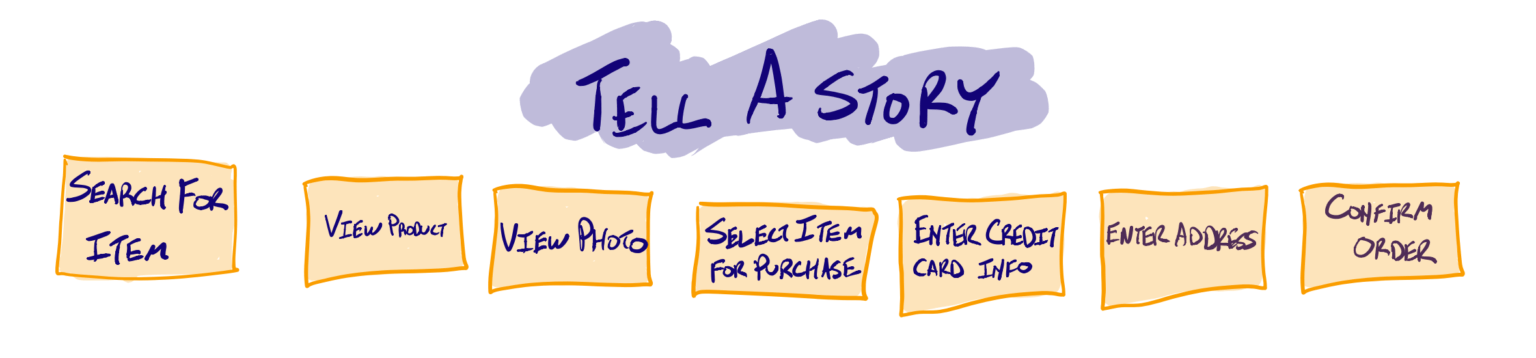 TELL A STORY
SEARCH FOR
ITEM
VIEW PRODUCT
VIEW PHOTO
SELECT ITEM
FOR PURCHASE
ENTER CREDIT
CARD INFO
ENTER ADDRESS
CONFIRM
ORDER